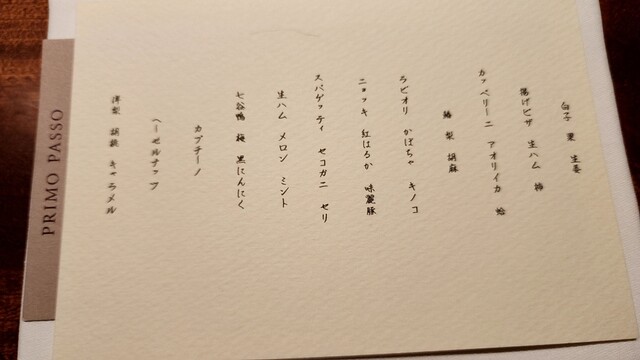 白子 栗 生姜
揚げピザ 生ハム 柿
カッペリーニ アオリイカ 蛤
鰆 梨 胡麻
ラビオリ かぼちゃ キノコ
ニョッキ 紅はるか 味麗豚
スパゲッティ セコガニ セリ
生ハム メロン ミント
七谷鴨 梅 黒にんにく
カプチーノ
ヘーゼルナッツ
洋梨 胡桃 キャラメル
PRIMO PASSO